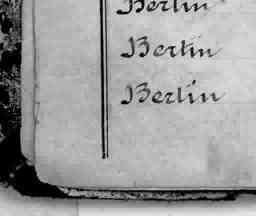 Berlin
Berlin
Berlin